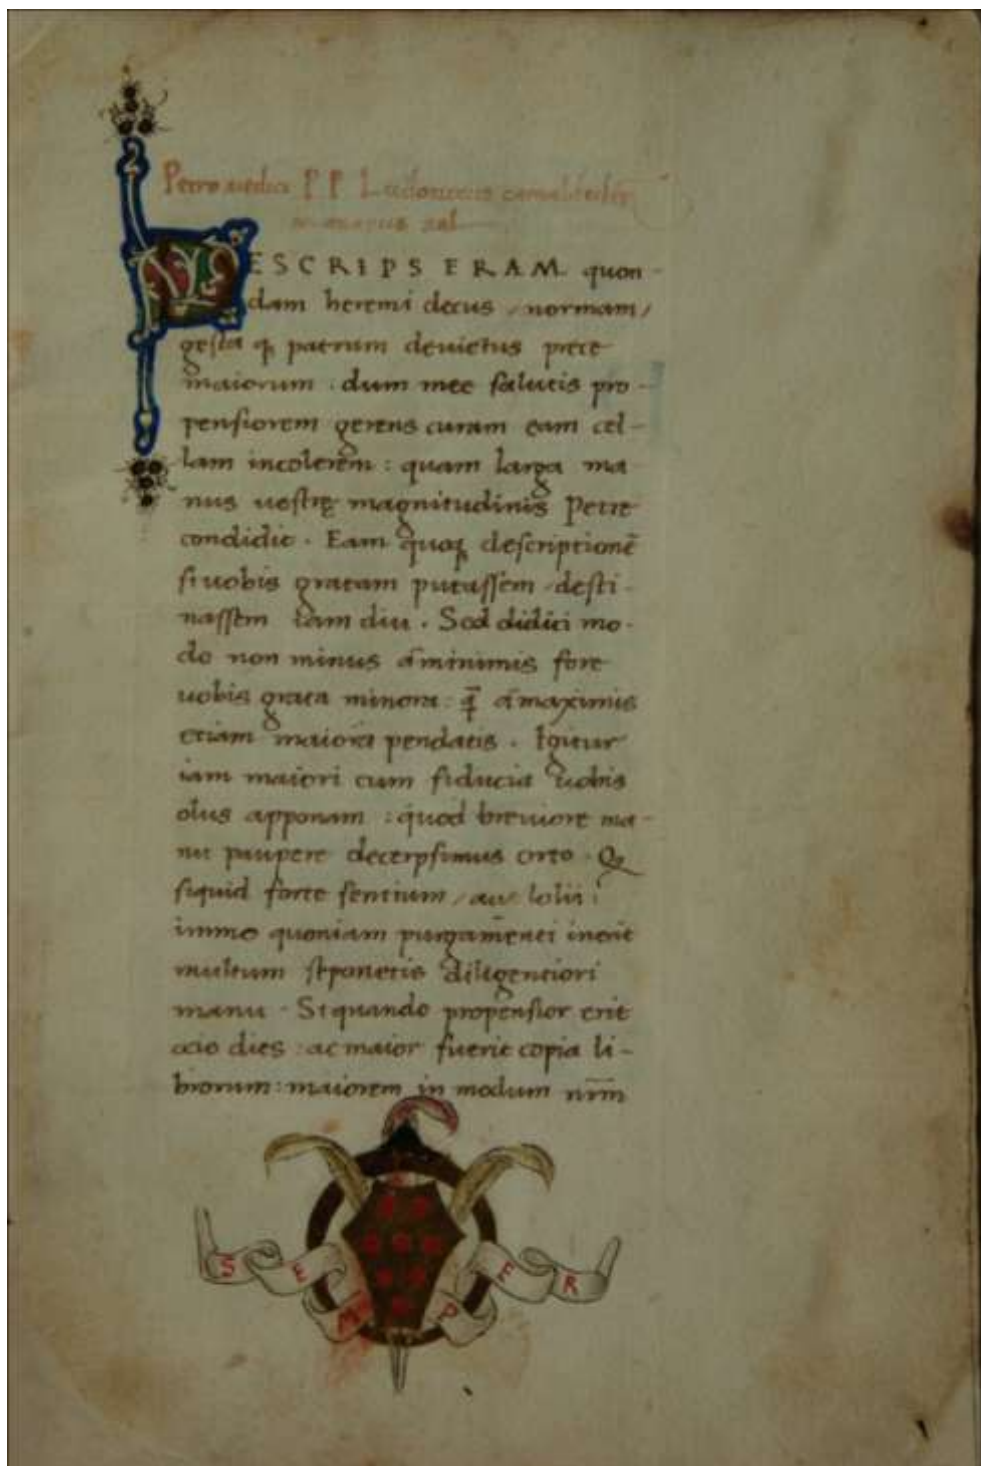 Petro medici P P Ludouicus camaldulen
monacus sal
DESCRIPSERAM quon-
dam heremi decus / normam /
gesta q; patrum deuictus prece
maiorum . dum mee salutis pro-
pensiorem gerens curam eam cel-
lam incolerem : quam larga ma
nus uestrę magnitudinis Petre
condidit . Eam quoq; descriptionē
si uobis gratam putassem desti-
nassem iam diu . Sed didici mo-
do non minus a minimis fore
uobis grata minora : q̄ a maximis
etiam maiora pendatis . Igitur
iam maiori cum fiducia uobis
olus apponam : quod breuiore ma-
nu paupere decerpsimus orto . Q;
siquid forte sentium / aut lolii :
immo quoniam purgamenti inerit
multum seponetis diligentiori
manu . Si quando propensior erit
ocio dies : ac maior fuerit copia li-
brorum : maiorem in modum nr̄m
SEMPER